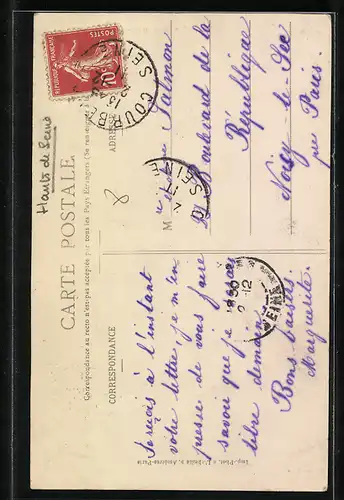 CARTE POSTALE
Correspondance au recto n'est pas acceptée par tous les Pays Etrangers (Se renseigner à la
CORRESPONDANCE
ADRESSE
Je reçois à l'instant
votre lettre, je m'em
presse de vous faire
savoir que je serai
libre demain.
Bons baisers.
Marguerite.
M
Salmon
Boulevard de la
République
Noisy-le-Sec
près Paris.
Hauts de Seine
8
REPUBLIQUE FRANÇAISE
POSTES
10
COURB
SEINE
SEINE
12
SEINE
Imp.-Phot. « L'Abeille », Asnières-Paris